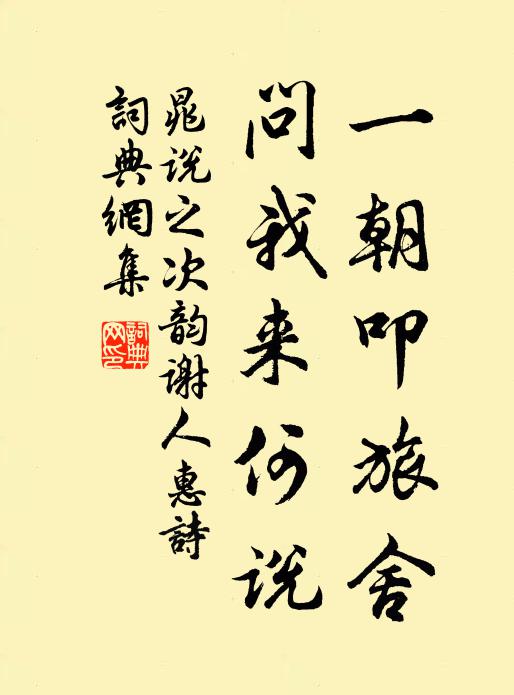 一朝叩旅舍
问我来何说
晁说之次韵谢人惠詩
詞典網集
詞典網印